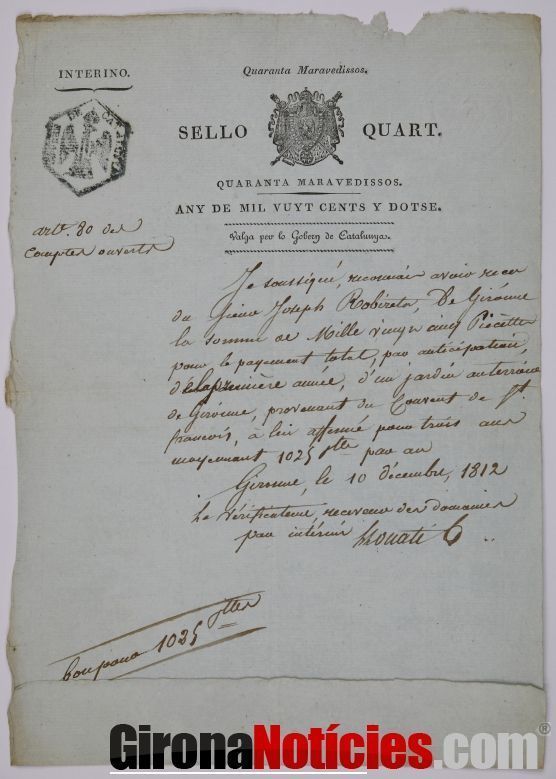 Quaranta Maravedissos.
INTERINO.
SELLO QUART.
QUARANTA MARAVEDISSOS.
ANY DE MIL VUYT CENTS Y DOTSE.
Valga per lo Gobern de Catalunya.
artle. 80 des
Comptes ouverts
Je soussigné, reconnais avoir reçu
du Sieur Joseph Robireta, De Gironne
la somme de Mille vingt cinq Piècettes
pour le payement total, par anticipation,
de la première année, d'un jardin au terroir
de Gironne, provenant du Couvent de St.
francois, à lui affermé pour trois ans
moyennant 1025 ttes par an
Gironne, le 10 décembre, 1812
Le vérificateur, receveur des domaines
par intérim
bon pour 1025 ttes
GironaNotícies.com®